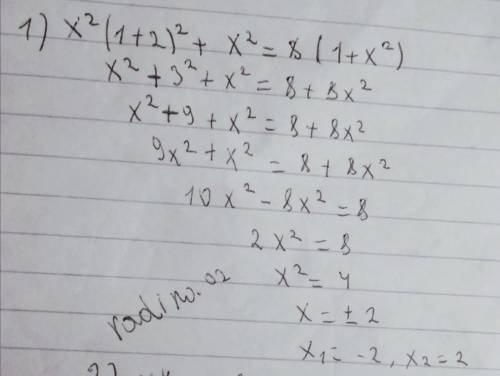 1) x²(1+2)² + x² = 8 (1+x²)
x² + 3² + x² = 8 + 8x²
x² + 9 + x² = 8 + 8x²
9x² + x² = 8 + 8x²
10x² - 8x² = 8
2x² = 8
x² = 4
x = ± 2
x₁ = -2, x₂ = 2